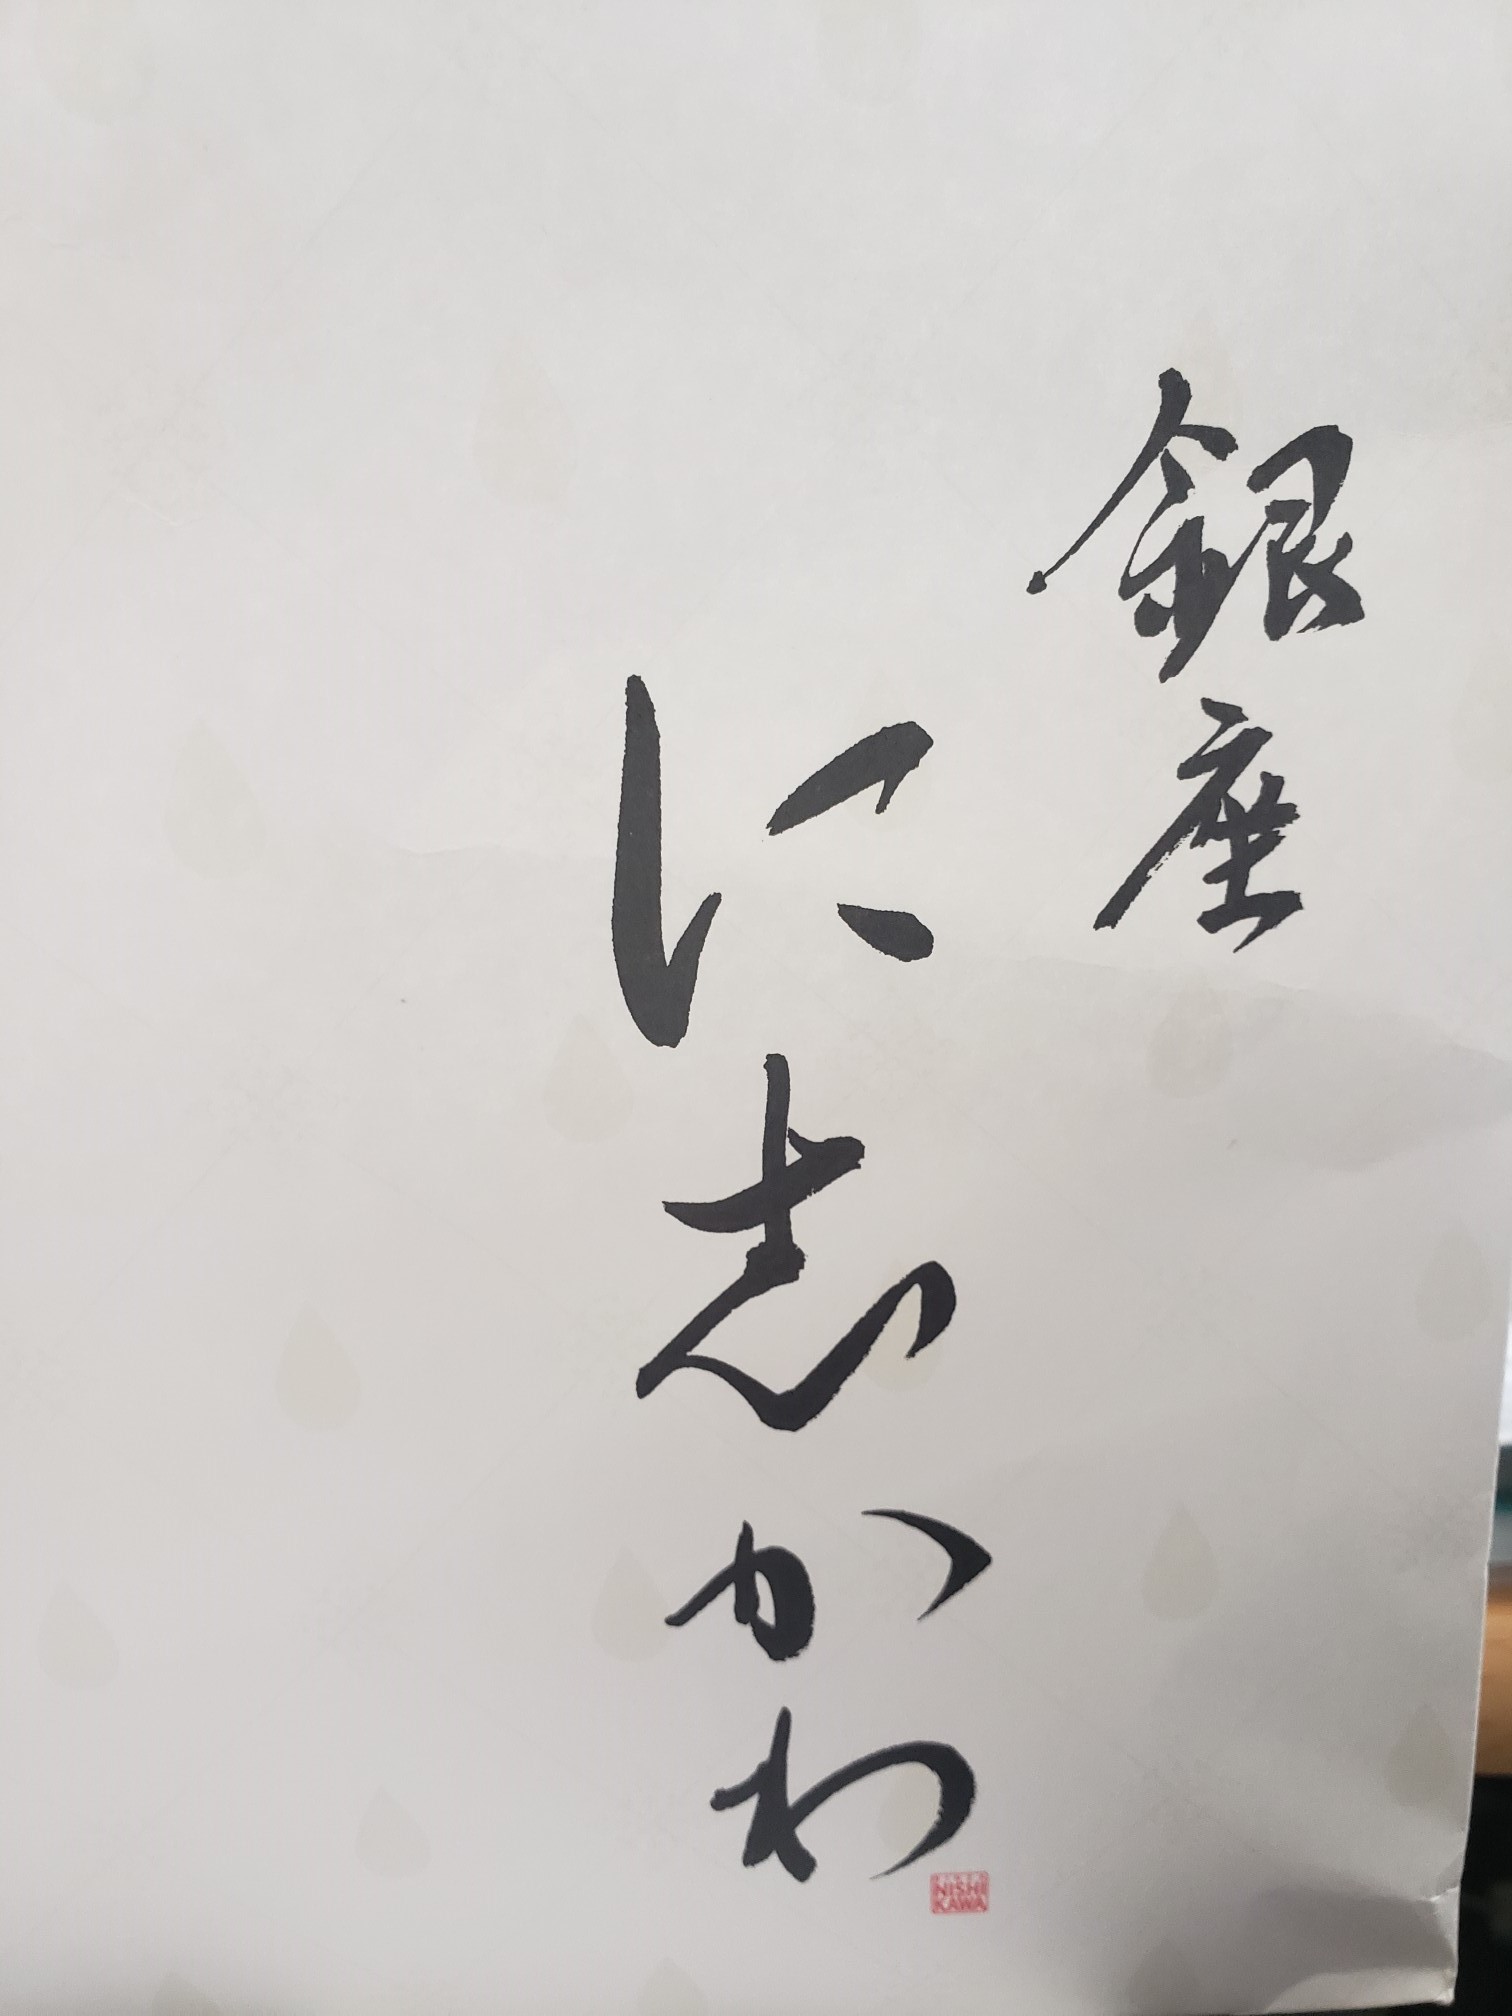 銀座
に志かわ
NISHI
KAWA